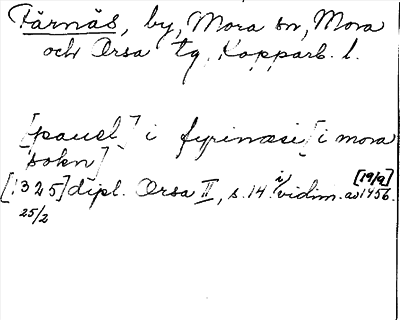 Färnäs, by, Mora sn, Mora
och Orsa tg, Kopparb. l.
[pauel] i fyrinæsi [i mora
sokn]
[19/9]
[1325] dipl. Orsa II, s. 14. i vidim. av 1456.
25/2